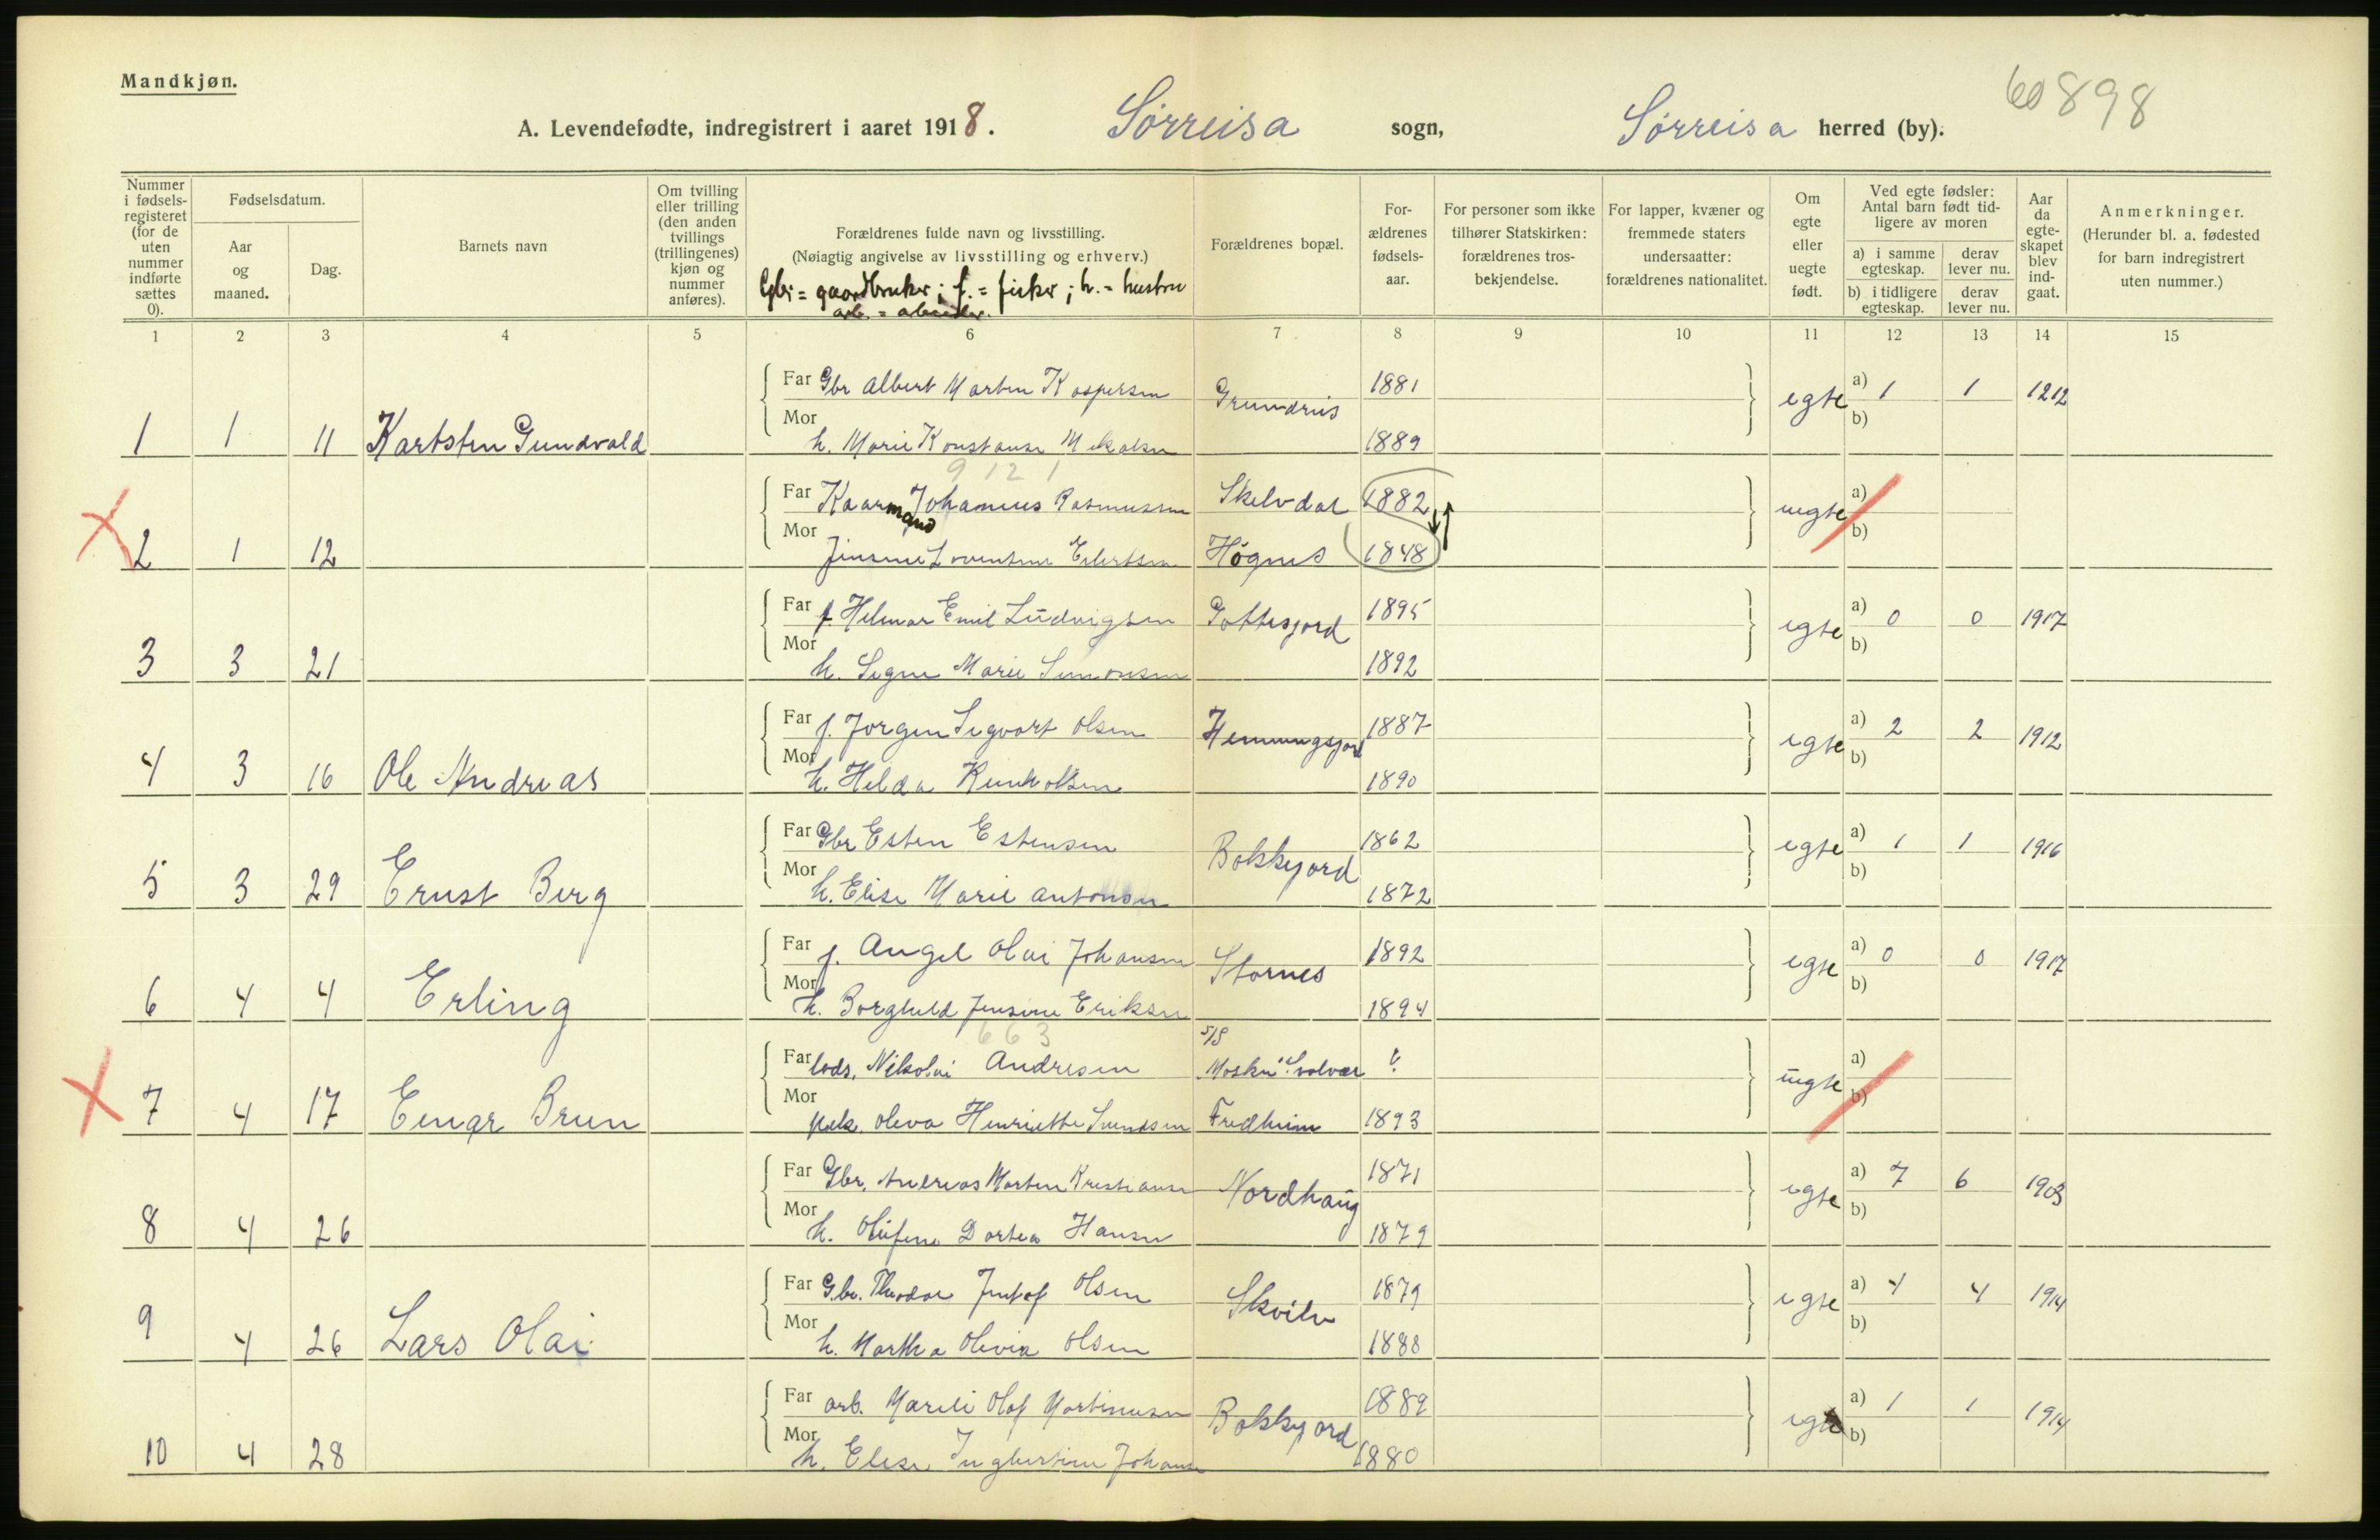 Mandkjøn.
60898
A. Levendefødte, indregistrert i aaret 1918. Sørreisa sogn, Sørreisa herred (by).
Nummer i fødsels-registeret (for de uten nummer indførte sættes 0).
Fødselsdatum.
Aar og maaned.
Dag.
Barnets navn
Om tvilling eller trilling (den anden tvillings (trillingenes) kjøn og nummer anføres).
Forældrenes fulde navn og livsstilling.
(Nøiagtig angivelse av livsstilling og erhverv.)
Gbr = gaardbruker; f. = fisker; h. = hustru
arb. = arbeider.
Forældrenes bopæl.
For-ældrenes fødsels-aar.
For personer som ikke tilhører Statskirken: forældrenes tros-bekjendelse.
For lapper, kvæner og fremmede staters undersaatter: forældrenes nationalitet.
Om egte eller uegte født.
Ved egte fødsler: Antal barn født tid-ligere av moren
a) i samme egteskap.
derav lever nu.
b) i tidligere egteskap.
derav lever nu.
Aar da egte-skapet blev ind-gaat.
Anmerkninger.
(Herunder bl. a. fødested for barn indregistrert uten nummer.)
1 2 3 4 5 6 7 8 9 10 11 12 13 14 15
Far Gbr Albert Morten Kaspersen Grundnis 1881 egte a) 1 1 1212
1 1 11 Kartsten Gundvald Mor h. Marie Konstanse Mikalsen 1889 b)
9121
Far Kaarmand Johannes Rasmussen Skelvdal 1882 uegte a)
2 1 12 Mor Jensine Lorentine Eilertsen Høgnes 1848 b)
Far f. Helmar Emil Ludvigsen Gottesjord 1895 egte a) 0 0 1917
3 3 21 Mor h. Signe Marie Simonsen 1892 b)
Far f. Jørgen Sigvart Olsen Hemmingsjord 1887 egte a) 2 2 1912
4 3 16 Ole Andreas Mor h. Helda 1890 b)
Far Gbr Esten Estensen Bakkejord 1862 egte a) 1 1 1916
5 3 29 Ernst Berg Mor h. Elise Marie Antonsen 1872 b)
Far f. Angel Olai Johansen Stornes 1892 egte a) 0 0 1917
6 4 4 Erling Mor h. Borghild Jensine Eriksen 1894 b)
663 5/S
Far lods. Nikolai Andresen Moskn. Svolvær ? uegte a)
7 4 17 Einar Brun Mor pike. Oleva Henriette Svendsen Fredheim 1893 b)
Far Gbr. Andreas Morten Kristiansen Nordhaug 1871 egte a) 7 6 1903
8 4 26 Mor h. Olufine Dortea Hansen 1879 b)
Far Gbr. Theodor Olsen Skvilv 1879 egte a) 4 4 1914
9 4 26 Lars Olai Mor h. Martha Olevia Olsen 1888 b)
Far arb. Olaf Martinusen Bakkejord 1889 egte a) 1 1 1914
10 4 28 Mor h. Elise Ingbertine Johansen 1880 b)